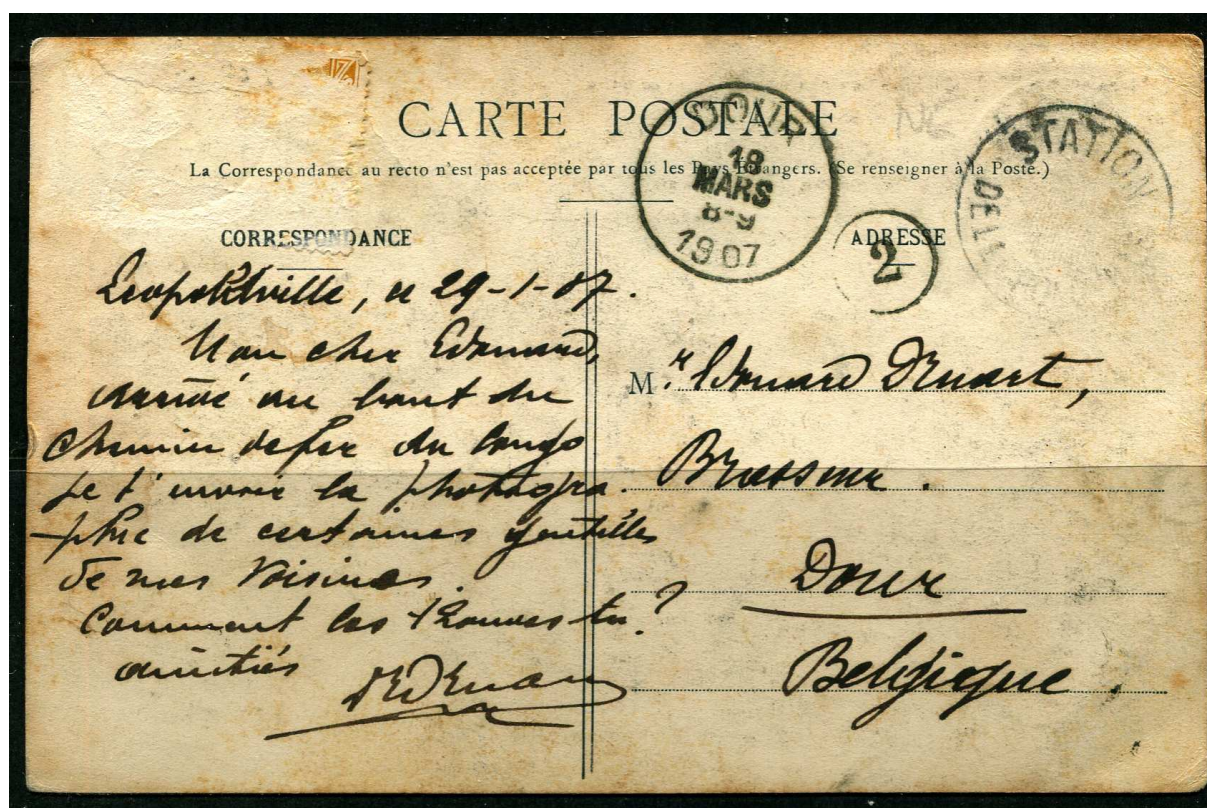 CARTE POSTALE
La Correspondance au recto n'est pas acceptée par tous les Pays Étrangers. (Se renseigner à la Poste.)
DOUR
18
MARS
8-9
1907
STATION
2
CORRESPONDANCE
Leopoldville, ce 29-1-07.
Mon cher Edouard,
arrivé au bout du
chemin de fer du Congo
je t'envoie la photogra-
phie de certaines gentilles
de mes voisines.
Comment les trouves tu?
amitiés
ADRESSE
M.r Edouard Druart,
Brasseur.
Dour
Belgique.